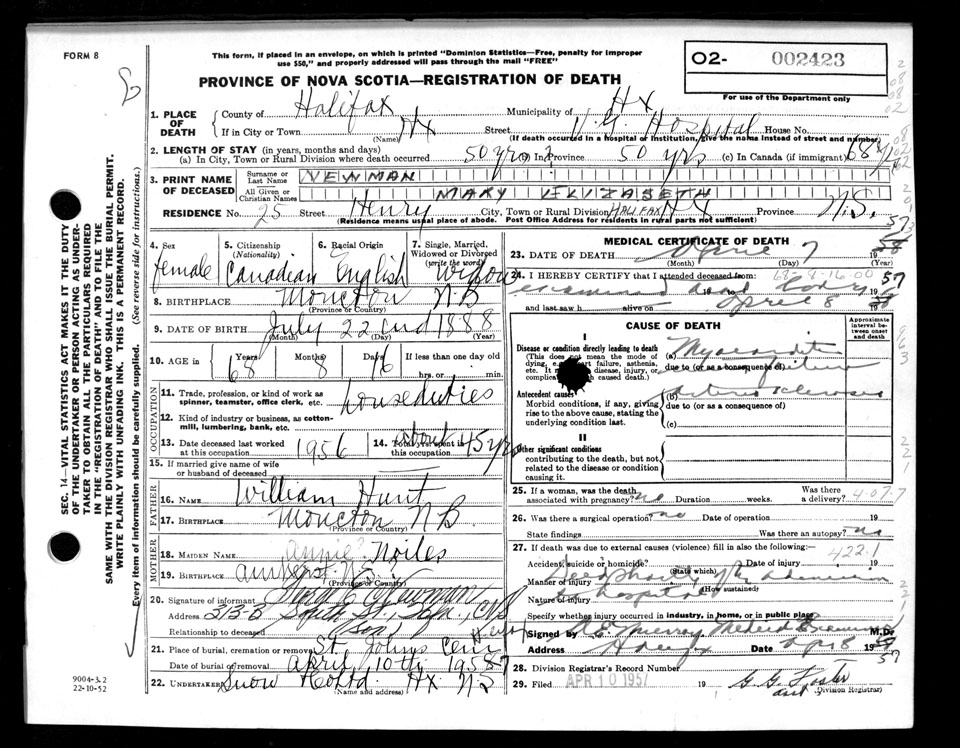 FORM 8
This form, if placed in an envelope, on which is printed "Dominion Statistics—Free, penalty for improper
use $50," and properly addressed will pass through the mail "FREE"
O2- 002423
For use of the Department only
PROVINCE OF NOVA SCOTIA—REGISTRATION OF DEATH
SEC. 14—VITAL STATISTICS ACT MAKES IT THE DUTY
OF THE UNDERTAKER OR PERSON ACTING AS UNDER-
TAKER TO OBTAIN ALL THE PARTICULARS REQUIRED
IN THE "REGISTRATION OF DEATH" AND TO FILE THE
SAME WITH THE DIVISION REGISTRAR WHO SHALL ISSUE THE BURIAL PERMIT.
WRITE PLAINLY WITH UNFADING INK. THIS IS A PERMANENT RECORD.
Every item of information should be carefully supplied. (See reverse side for instructions.)
1. PLACE OF DEATH
County of Halifax Municipality of Hx
If in City or Town Hx Street V.G. Hospital House No.
(Name) (If death occurred in a hospital or institution, give the name instead of street and number)
2. LENGTH OF STAY (in years, months and days)
(a) In City, Town or Rural Division where death occurred 50 yrs (b) In Province 50 yrs (c) In Canada (if immigrant) 68
3. PRINT NAME OF DECEASED
Surname or Last Name NEWMAN
All Given or Christian Names MARY ELIZABETH
RESIDENCE No. 25 Street Henry City, Town or Rural Division HALIFAX Province N.S.
(Residence means usual place of abode. Post Office Address for residents in rural parts not sufficient)
4. Sex female
5. Citizenship (Nationality) Canadian
6. Racial Origin English
7. Single, Married, Widowed or Divorced (write the word) Widow
8. BIRTHPLACE Moncton N.B
(Province or Country)
9. DATE OF BIRTH July 22nd 1888
(Month) (Day) (Year)
10. AGE in Years 68 Months 8 Days 16 If less than one day old
hrs. or min.
OCCUPATION
11. Trade, profession, or kind of work as spinner, teamster, office clerk, etc. house duties
12. Kind of industry or business, as cotton-mill, lumbering, bank, etc.
13. Date deceased last worked at this occupation 1956
14. Total yrs. spent in this occupation about 45 yrs
15. If married give name of wife or husband of deceased
FATHER
16. NAME William Hunt
17. BIRTHPLACE Moncton N.B
(Province or Country)
MOTHER
18. MAIDEN NAME Annie Noiles
19. BIRTHPLACE Amherst N.S.
(Province or Country)
20. Signature of informant Newman
Address 313-B South St.
Relationship to deceased Son
21. Place of burial, cremation or removal St. Johns Cem
Date of burial or removal April 10th 1957
22. UNDERTAKER Snow Co Ltd Hx N.S
(Name and address)
9004-3.2
22-10-52
MEDICAL CERTIFICATE OF DEATH
23. DATE OF DEATH April 7 19 57
(Month) (Day)
24. I HEREBY CERTIFY that I attended deceased from:
examined dead body 19 to 19 57
and last saw h alive on April 8 19
CAUSE OF DEATH
Approximate interval between onset and death
I
Disease or condition directly leading to death
(This does not mean the mode of dying, e.g. heart failure, asthenia, etc. It means disease, injury, or complication which caused death.)
(a) Myocarditis
due to (or as a consequence of)
Antecedent causes
Morbid conditions, if any, giving rise to the above cause, stating the underlying condition last.
(b) Arterio Sclerosis
due to (or as a consequence of)
(c)
II
Other significant conditions
contributing to the death, but not related to the disease or condition causing it.
25. If a woman, was the death associated with pregnancy? no Duration weeks. Was there a delivery?
26. Was there a surgical operation? no Date of operation 19
State findings Was there an autopsy? no
27. If death was due to external causes (violence) fill in also the following:—
422.1
Accident, suicide or homicide? Date of injury 19
(State which)
Manner of injury Died shortly after admission
(How sustained)
Nature of injury to hospital
Specify whether injury occurred in industry, in home, or in public place
Signed by Murray Medical Examiner M.D.
Address Halifax Date Apr 8 19 57
28. Division Registrar's Record Number
29. Filed APR 10 1957 G. G. Foster
Division Registrar)